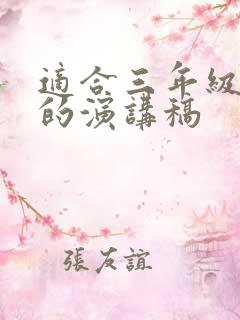 適合三年級
的演講稿
張友誼